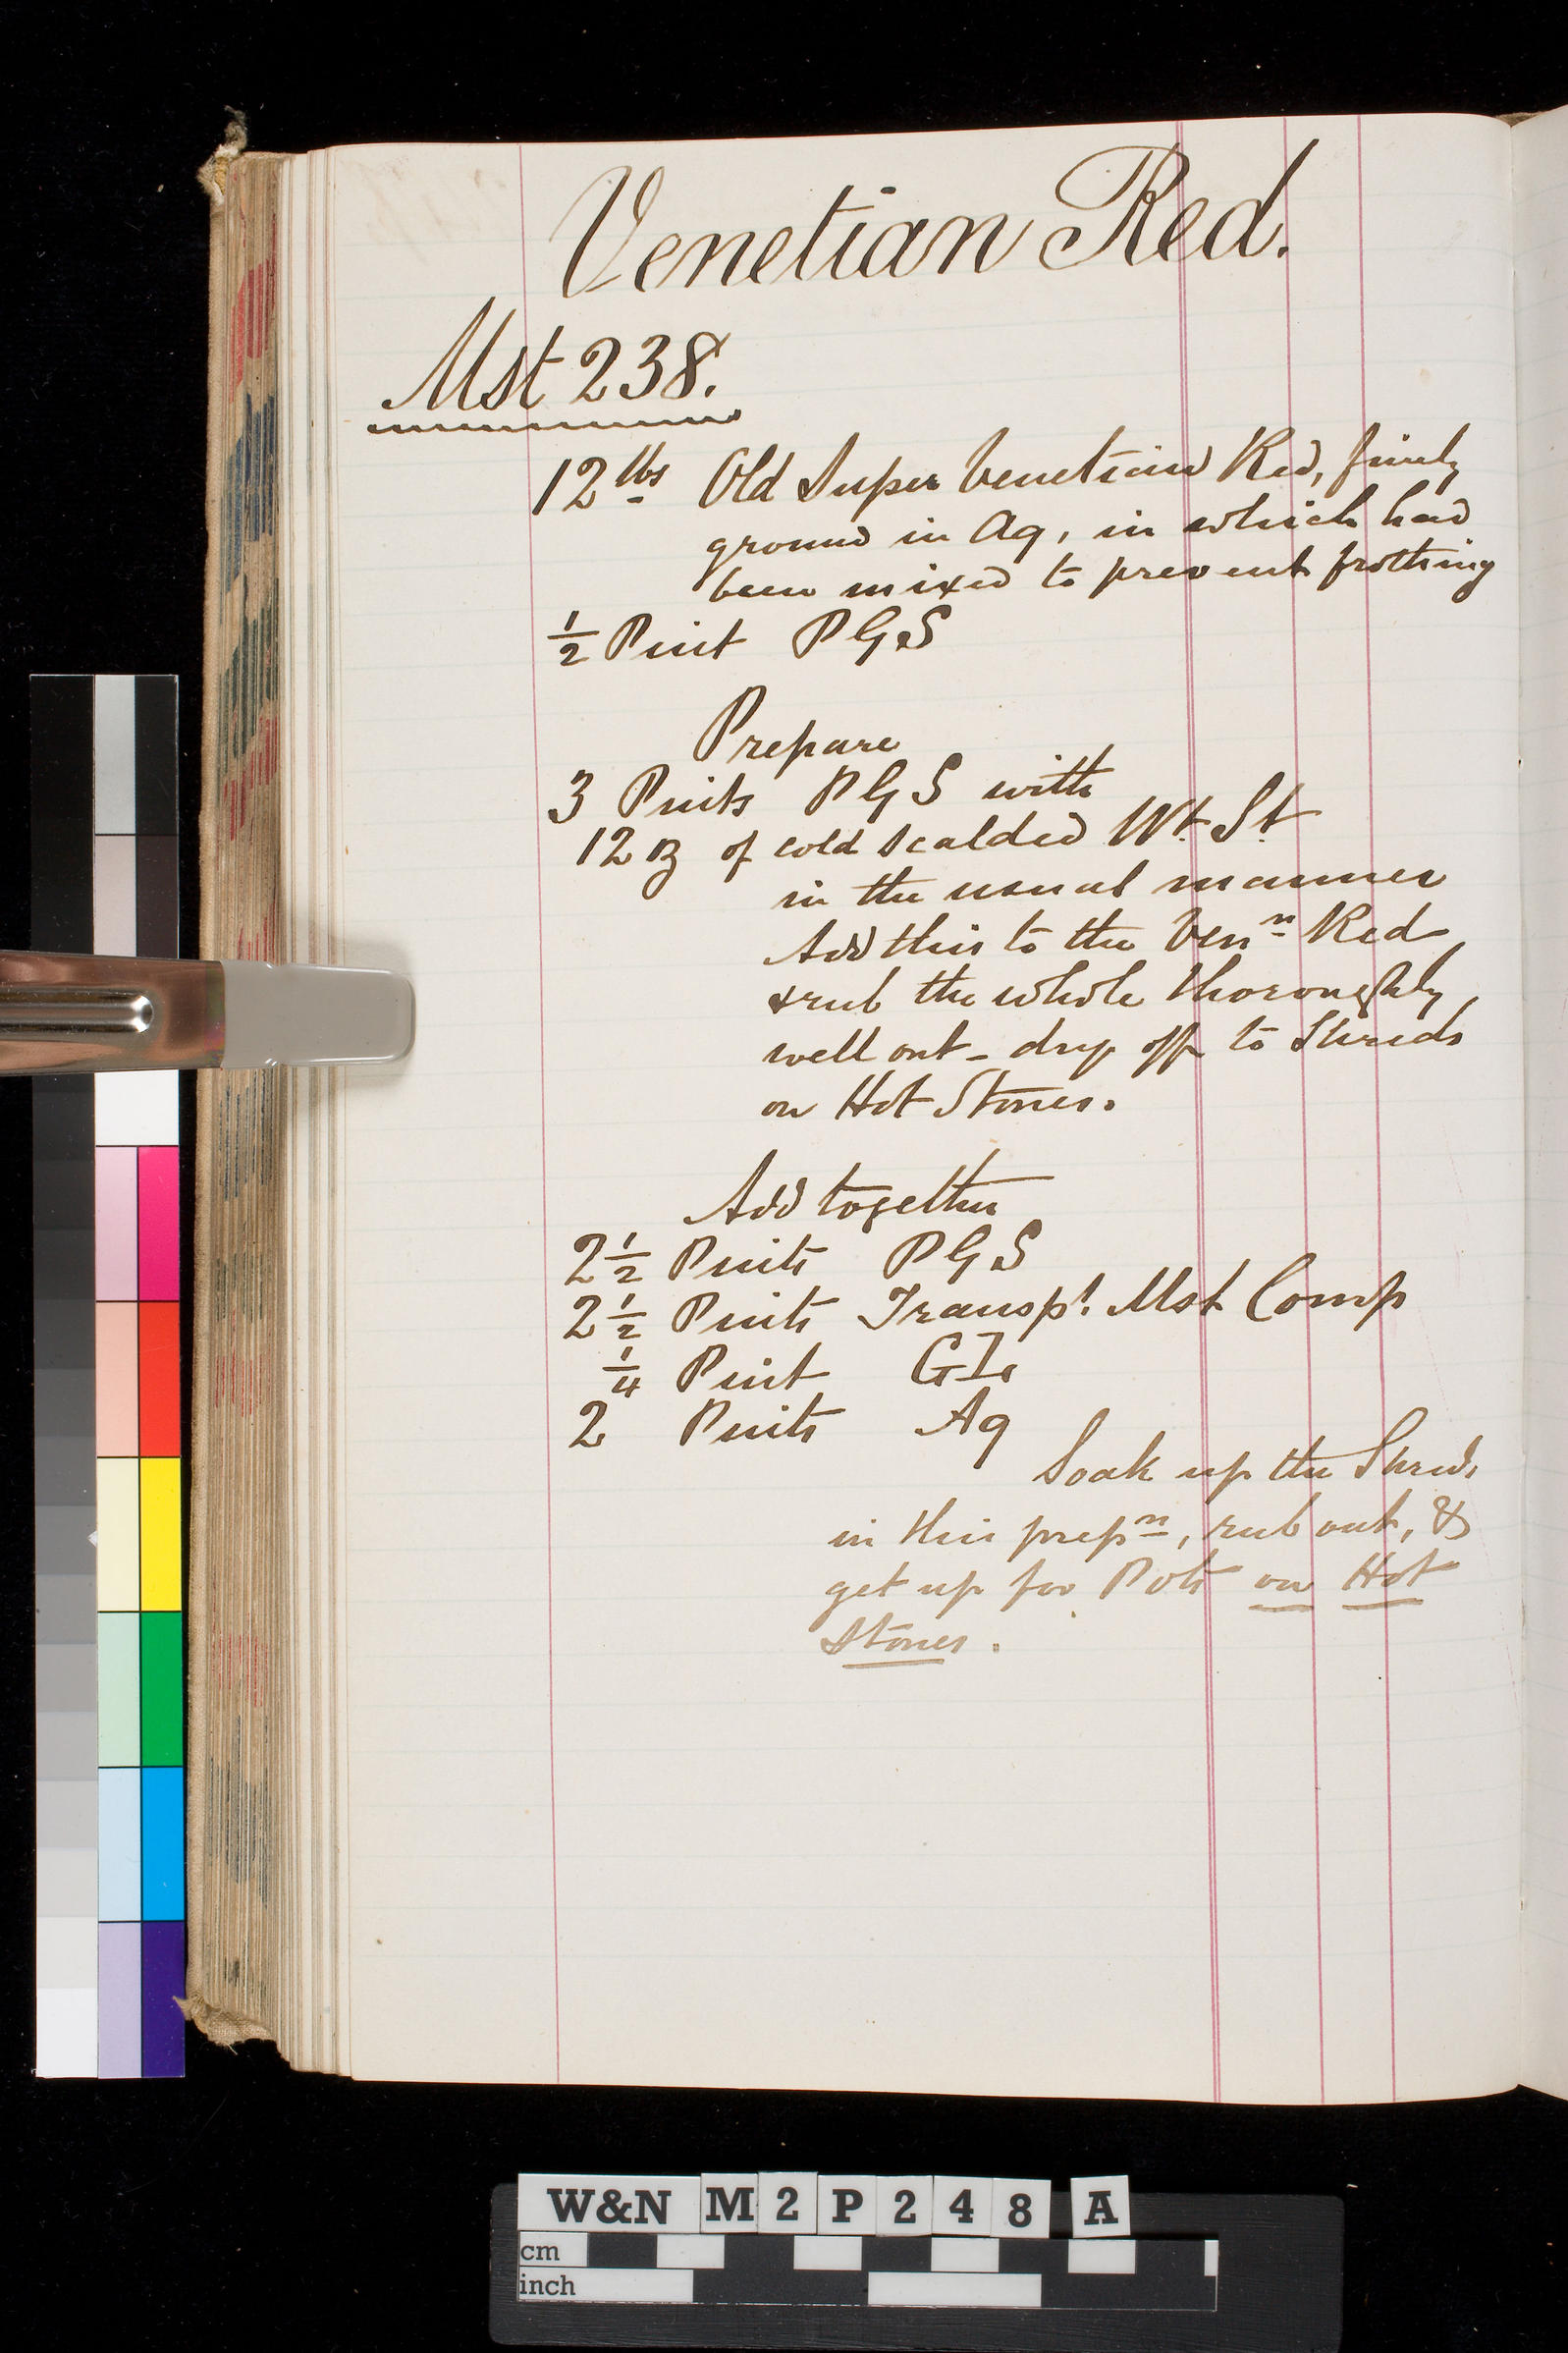 Venetian Red.
Mst 238.
12 lbs Old Super Venetian Red, finely
ground in Aq, in which had
been mixed to prevent frothing
½ Pint PGS
Prepare
3 Pints PGS with
12 oz of cold scalded Wt. St.
in the usual manner
Add this to the Venn Red
& rub the whole thoroughly,
well out - dry off to Shreds
on Hot Stones.
Add together
2½ Pints PGS
2½ Pints Transpt. Mst Comp
¼ Pint GL
2 Pints Aq
Soak up the Shreds
in this prepn, rub out, &
get up for Pots on Hot
Stones.
W&N M2P248 A
cm
inch